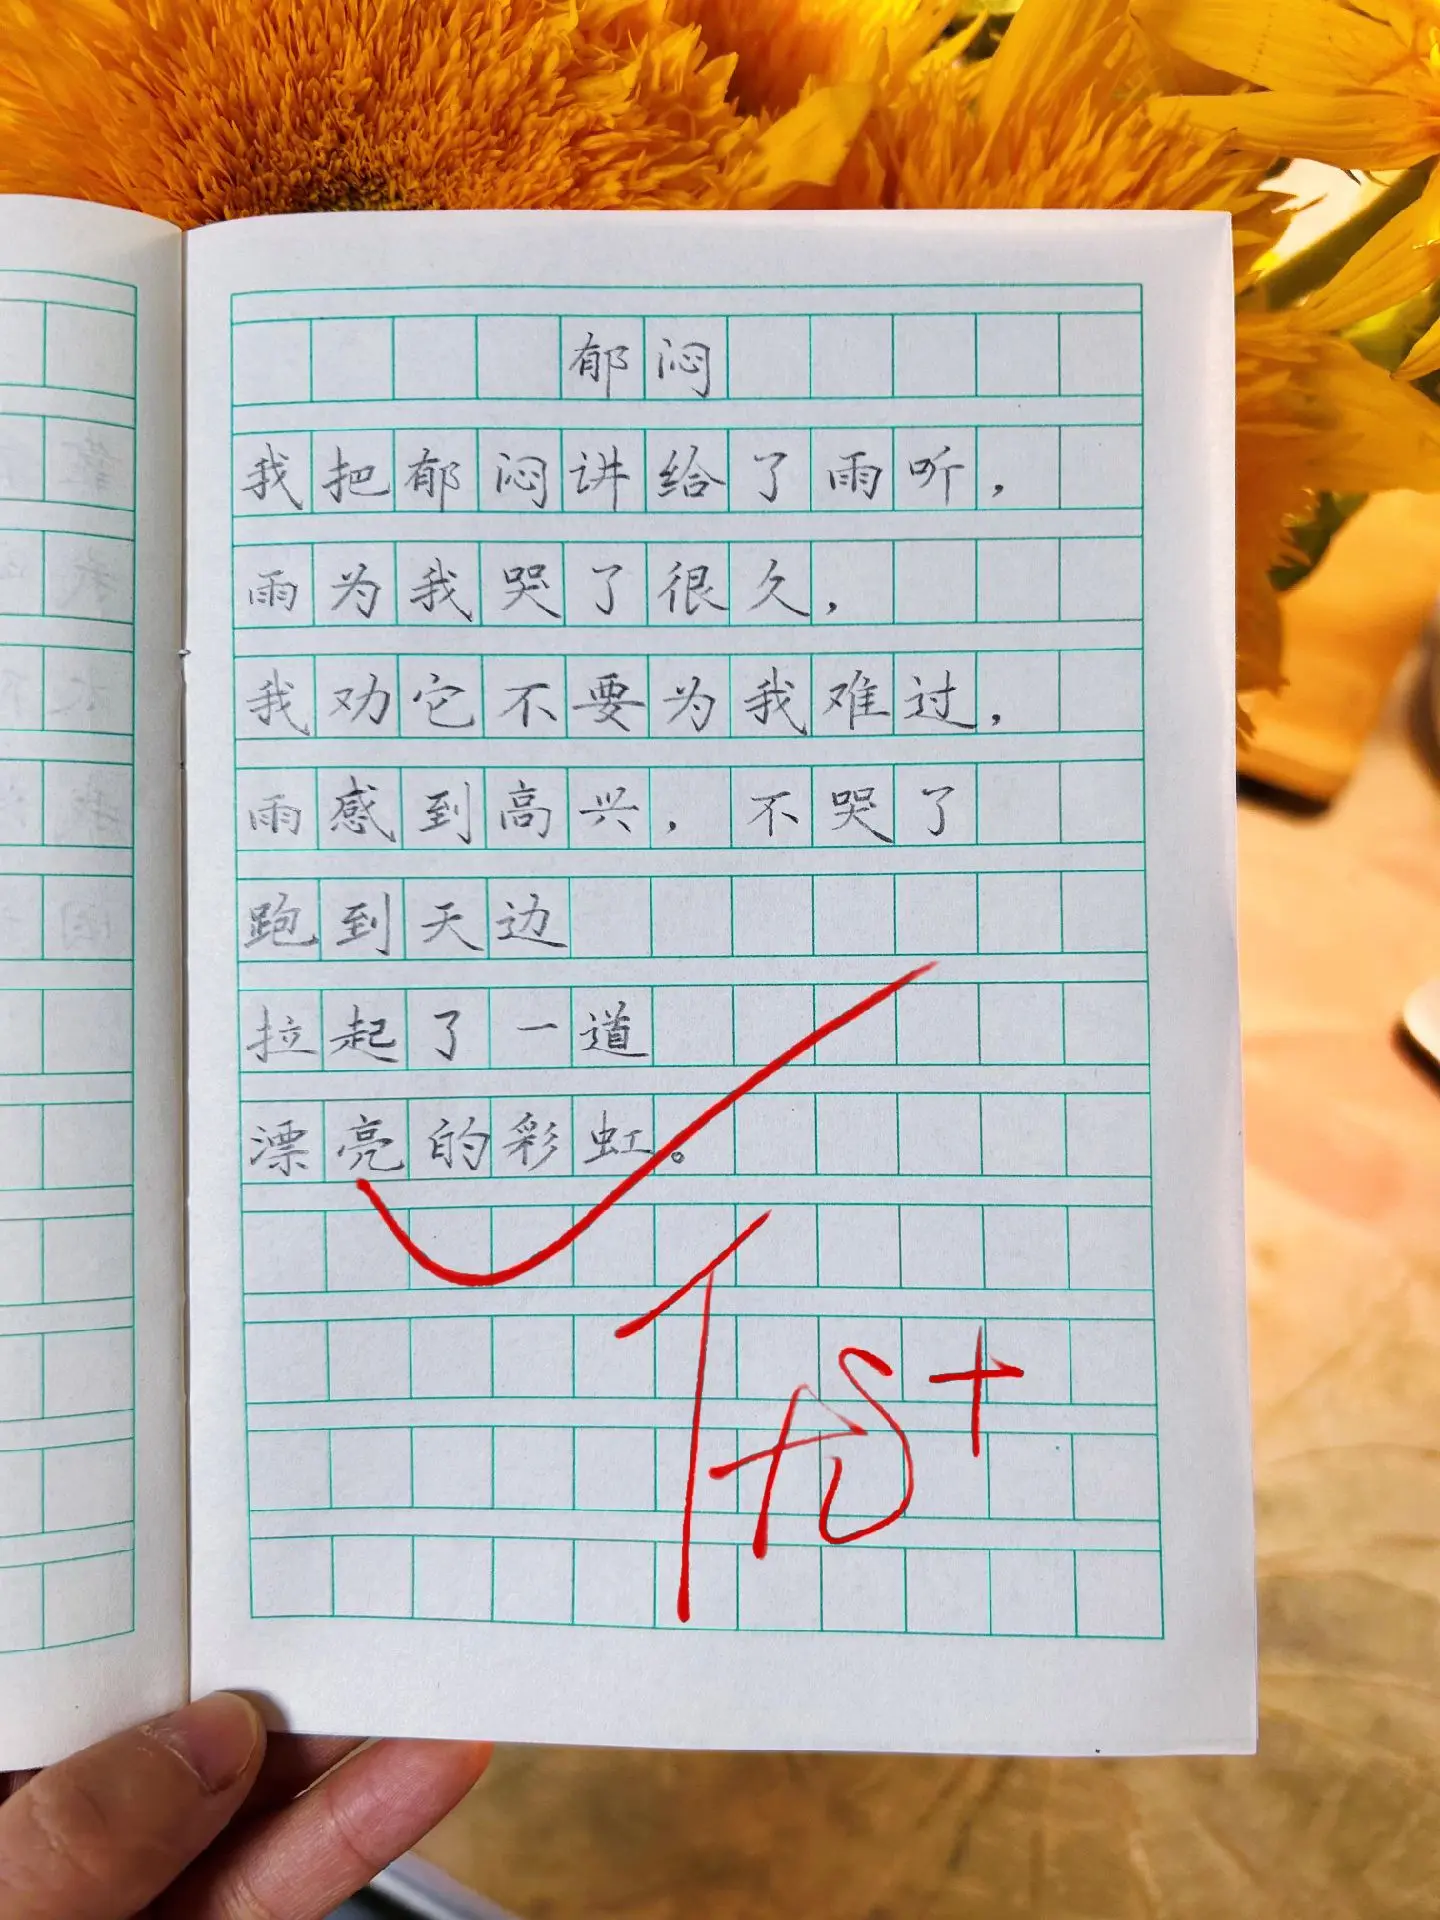 郁闷
我把郁闷讲给了雨听，
雨为我哭了很久，
我劝它不要为我难过，
雨感到高兴，不哭了
跑到天边
拉起了一道
漂亮的彩虹。